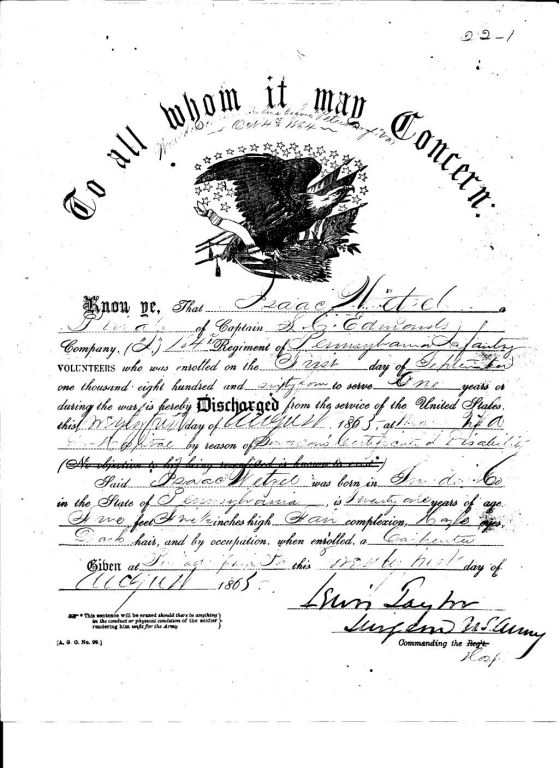 22-1
To all whom it may Concern:
Oct 1864
Know ye, That Isaac Wetzel a
of Captain Edmonds
Company, 104th Regiment of Pennsylvania Infantry
VOLUNTEERS who was enrolled on the First day of September
one thousand eight hundred and to serve One years or
during the war, is hereby Discharged from the service of the United States,
this day of August 1865, at
Hospital by reason of Surgeon's Certificate of Disability
(No objection to his being re-enlisted is known to exist.*)
Said Isaac Wetzel was born in
in the State of Pennsylvania, is Twenty one years of age,
Five feet inches high, Fair complexion, eyes,
Dark hair, and by occupation, when enrolled, a Carpenter
Given at this day of
August 1865.
Taylor
Surgeon U S Army
Commanding the Reg't.
Hosp
* This sentence will be erased should there be anything
in the conduct or physical condition of the soldier
rendering him unfit for the Army
[A. G. O. No. 99.]